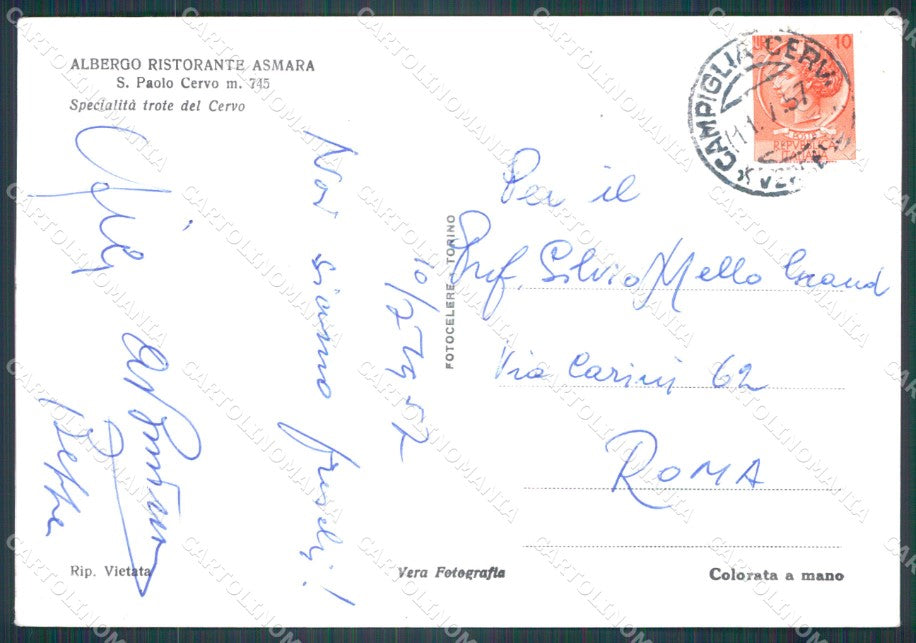 ALBERGO RISTORANTE ASMARA
S. Paolo Cervo m. 745
Specialità trote del Cervo
10/7 1957
Noi siamo freschi!
Beppe
FOTOCELERE - TORINO
CAMPIGLIA CERVO
11.7.57
10
Per il
Prof. Silvio Mello Grand
Via Carini 62
ROMA
Rip. Vietata
Vera Fotografia
Colorata a mano
CARTOLINOMANIA